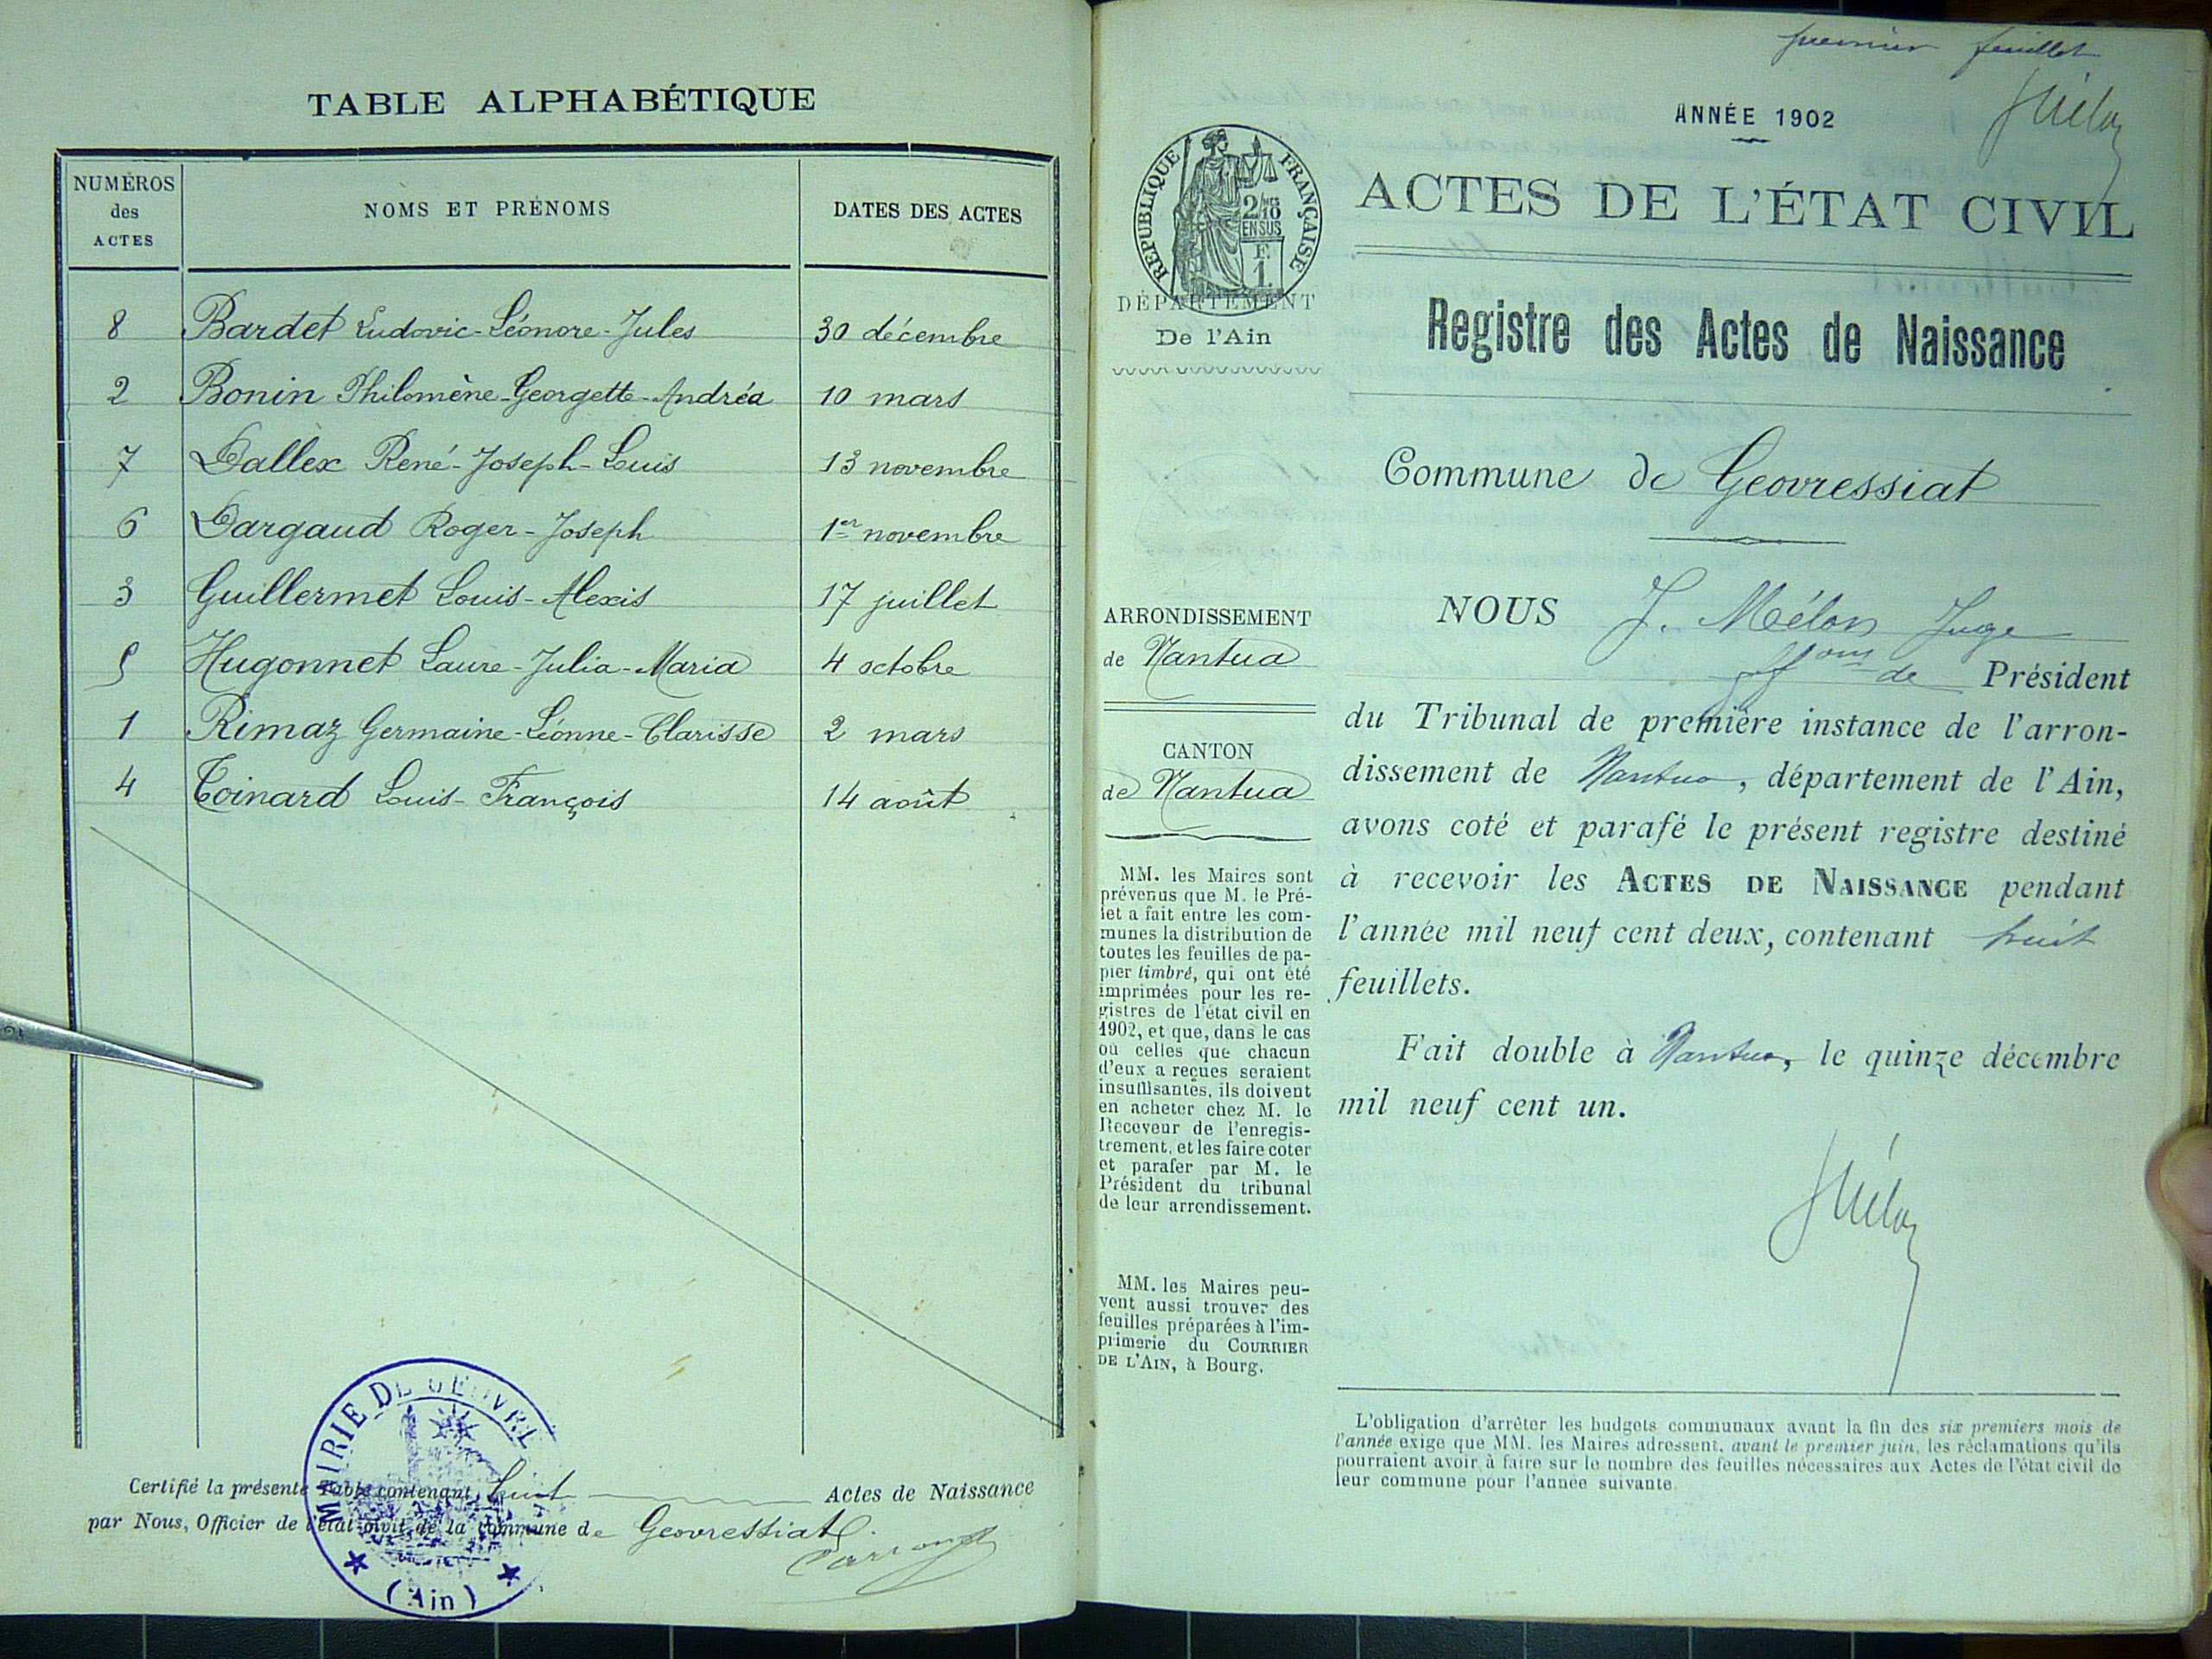 TABLE ALPHABÉTIQUE
NUMÉROS des ACTES
NOMS ET PRÉNOMS
DATES DES ACTES
8 Bardet Ludovic-Léonore-Jules 30 décembre
2 Bonin Philomène-Georgette-Andréa 10 mars
7 Dallex René-Joseph-Louis 13 novembre
6 Dargaud Roger-Joseph 1er novembre
3 Guillermet Louis-Alexis 17 juillet
5 Hugonnet Laure-Julia-Maria 4 octobre
1 Rimaz Germaine-Léonne-Clarisse 2 mars
4 Toinard Louis-François 14 août
Certifié la présente Table contenant huit Actes de Naissance
par Nous, Officier de l'état civil de la commune de Geovressiat.
MAIRIE DE GEOVRE
(Ain)
premier feuillet
Mélon
ANNÉE 1902
ACTES DE L'ÉTAT CIVIL
RÉPUBLIQUE FRANÇAISE
2/10
EN SUS
F.
1.
DÉPARTEMENT
De l'Ain
Registre des Actes de Naissance
Commune de Geovressiat
ARRONDISSEMENT
de Nantua
CANTON
de Nantua
MM. les Maires sont
prévenus que M. le Pré-
fet a fait entre les com-
munes la distribution de
toutes les feuilles de pa-
pier timbré, qui ont été
imprimées pour les re-
gistres de l'état civil en
1902, et que, dans le cas
où celles que chacun
d'eux a reçues seraient
insuffisantes, ils doivent
en acheter chez M. le
Receveur de l'enregis-
trement, et les faire coter
et parafer par M. le
Président du tribunal
de leur arrondissement.
MM. les Maires peu-
vent aussi trouver des
feuilles préparées à l'im-
primerie du COURRIER
DE L'AIN, à Bourg.
NOUS J. Mélon Juge
ff ons de Président
du Tribunal de première instance de l'arron-
dissement de Nantua, département de l'Ain,
avons coté et parafé le présent registre destiné
à recevoir les ACTES DE NAISSANCE pendant
l'année mil neuf cent deux, contenant huit
feuillets.
Fait double à Nantua, le quinze décembre
mil neuf cent un.
Mélon
L'obligation d'arrêter les budgets communaux avant la fin des six premiers mois de
l'année exige que MM. les Maires adressent, avant le premier juin, les réclamations qu'ils
pourraient avoir à faire sur le nombre des feuilles nécessaires aux Actes de l'état civil de
leur commune pour l'année suivante.